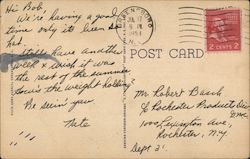 Hi Bob,
We're having a good
time only its been so
hot.
Still have another
week & wish it was
the rest of the summer.
How's the weight holding?
Be seein' you
Nate
JUL 17
1951
N.Y.
2 CENTS 2
POST CARD
Mr Robert Bush
% Rochester Products Div
G.M.C.
1000 Lexington Ave
Rochester, N.Y
Dept 31